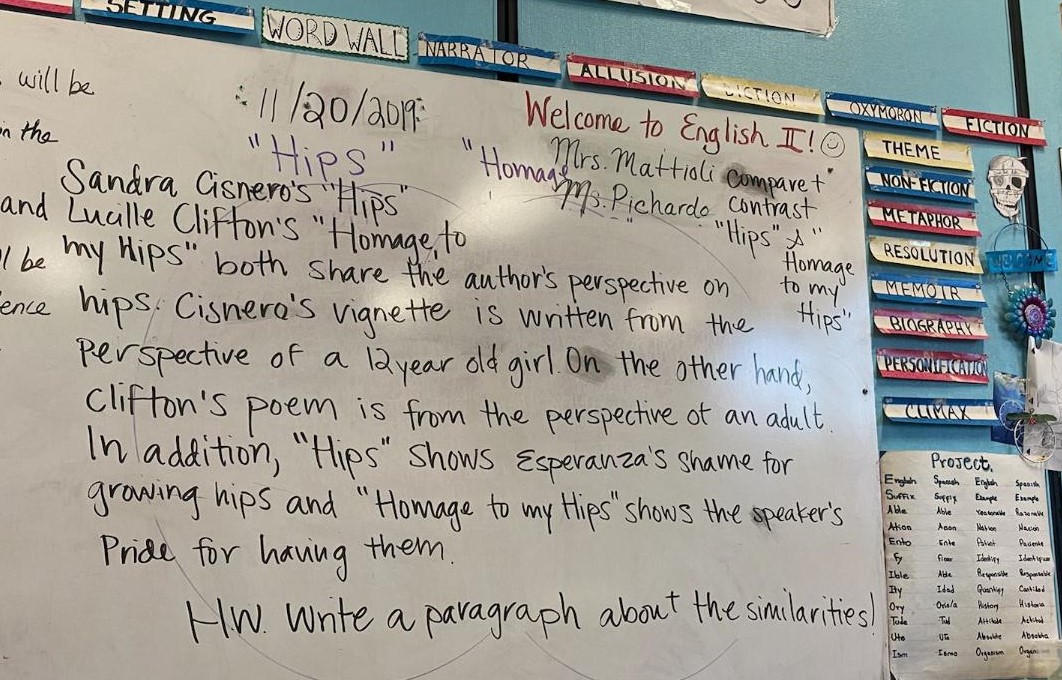 SETTING
WORD WALL
NARRATOR
ALLUSION
DICTION
OXYMORON
FICTION
THEME
NON-FICTION
METAPHOR
RESOLUTION
MEMOIR
BIOGRAPHY
PERSONIFICATION
CLIMAX
will be
in the
and
be
11/20/2019
Welcome to English II! ☺
Mrs. Mattioli
Ms. Pichardo
"Hips" "Homage
compare +
contrast
"Hips" &
"Homage
to my
Hips"
Sandra Cisnero's "Hips"
Lucille Clifton's "Homage to
my Hips" both share the author's perspective on
hips. Cisnero's vignette is written from the
perspective of a 12 year old girl. On the other hand,
Clifton's poem is from the perspective of an adult.
In addition, "Hips" shows Esperanza's shame for
growing hips and "Homage to my Hips" shows the speaker's
Pride for having them.
H.W. Write a paragraph about the similarities!
Project.
English Spanish English Spanish
Suffix Suffix Example Example
Able Able Reasonable Razonable
Ation Nation Nación
Ento Ente Patient Paciente
Fy Ficar Identify
Ible Able Responsible Responsable
Ity Idad Quantity Cantidad
Ory Orio/a History Historia
Tude Tud Attitude Actitud
Ute Uto Absolute
Ism Ismo Organism